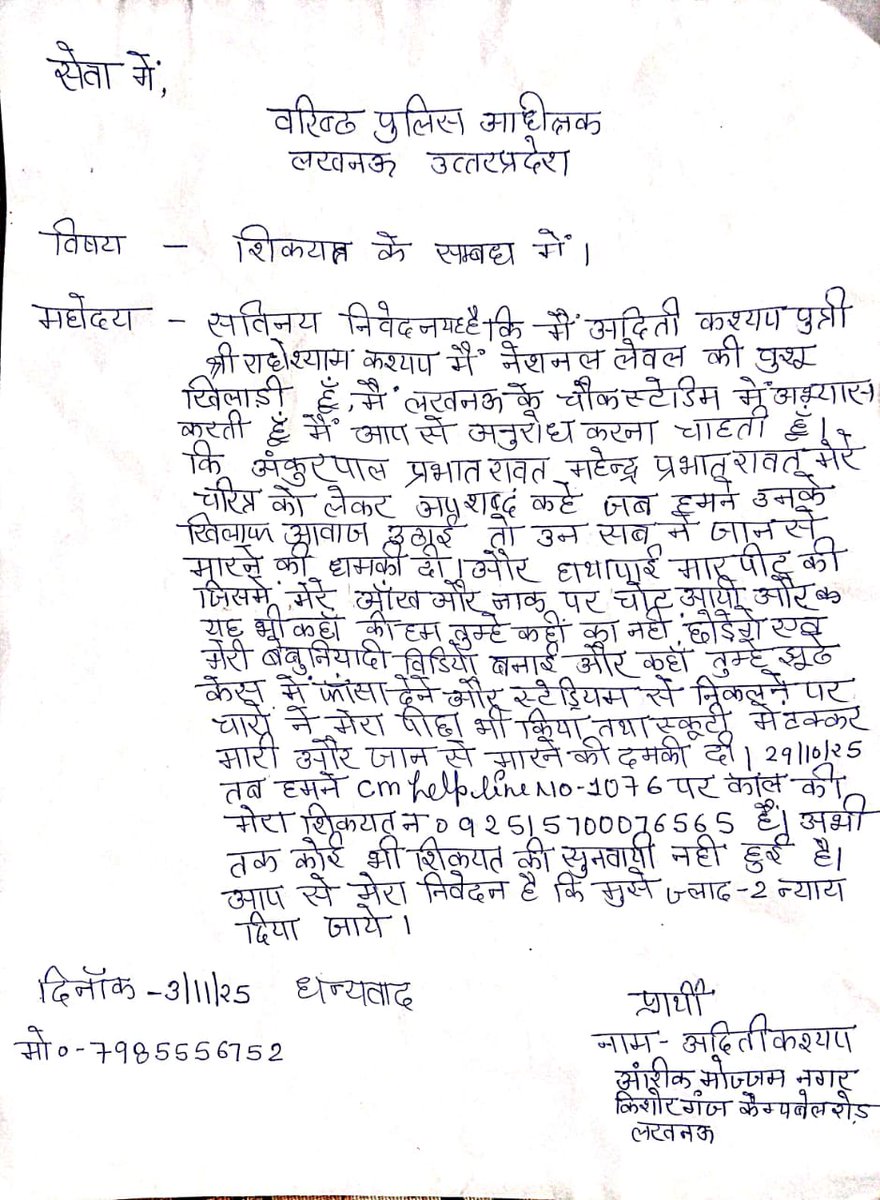 सेवा में,
वरिष्ठ पुलिस अधीक्षक
लखनऊ उत्तरप्रदेश
विषय - शिकयत के सम्बध में।
महोदय - सविनय निवेदन यह है कि मैं अदिती कश्यप पुत्री
श्री राधेश्याम कश्यप मैं नेशनल लेवल की वुशू
खिलाड़ी हूँ, मैं लखनऊ के चौक स्टेडिम में अभ्यास
करती हूँ मैं आप से अनुरोध करना चाहती हूँ।
कि अंकुर पाल प्रभात रावत महेन्द्र प्रभात रावत मेरे
चरित्र को लेकर अपशब्द कहे जब हमने उनके
खिलाफ आवाज उठाई तो उन सब ने जान से
मारने की धमकी दी। और हाथापाई मारपीट की
जिसमें मेरे आँख और नाक पर चोट आयी और
यह भी कहाँ की हम तुम्हे कहीं का नहीं छोडेगे एवं
मेरी बेबुनियादी विडियो बनाई और कहाँ तुम्हे झूठे
केस में फांसा देने और स्टेडियम से निकलने पर
चारो ने मेरा पीछा भी किया तथा स्कूटी में टक्कर
मारी और जान से मारने की दमकी दी। 29/10/25
तब हमने cm help line NO-1076 पर काल की
मेरा शिकयत न 092515700076565 हैं। अभी
तक कोई भी शिकयत की सुनवायी नही हुई है।
आप से मेरा निवेदन है कि मुझे ज्लाद-2 न्याय
दिया जाये।
दिनाँक -3/11/25 धन्यवाद
मो०-7985556752
प्रार्थी
नाम- अदिती कश्यप
मोज्जम नगर
किशोर गंज कैम्पबेल रोड़
लखनऊ